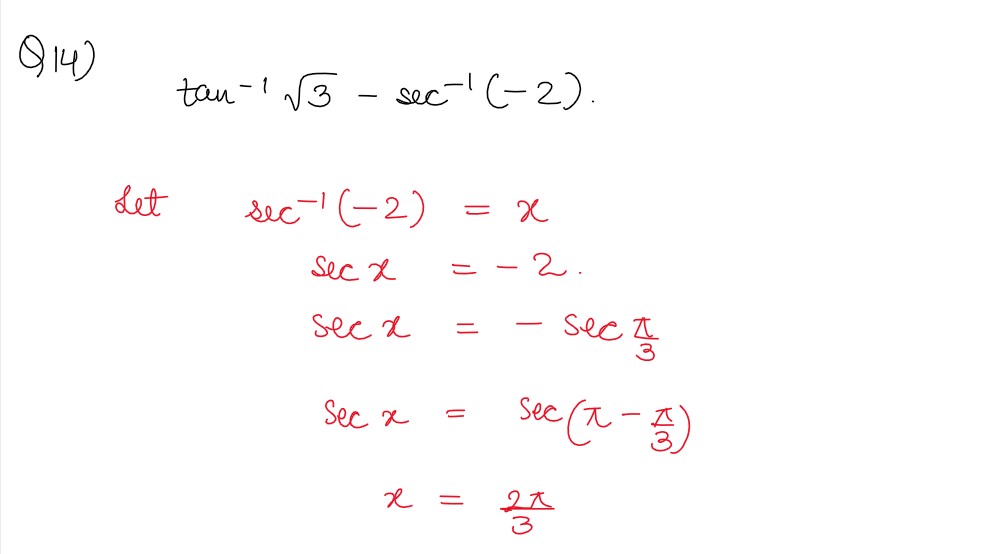 Q14)
tan⁻¹ √3 − sec⁻¹ (−2).
Let sec⁻¹ (−2) = x
sec x = − 2.
sec x = − sec π/3
sec x = sec (π − π/3)
x = 2π/3